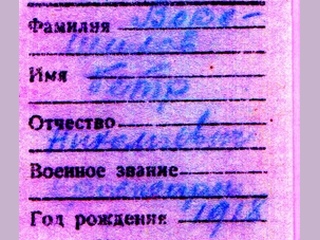 Фамилия Воро-
шилов
Имя Петр
Отчество
Николаевич
Военное звание
Год рождения 1918